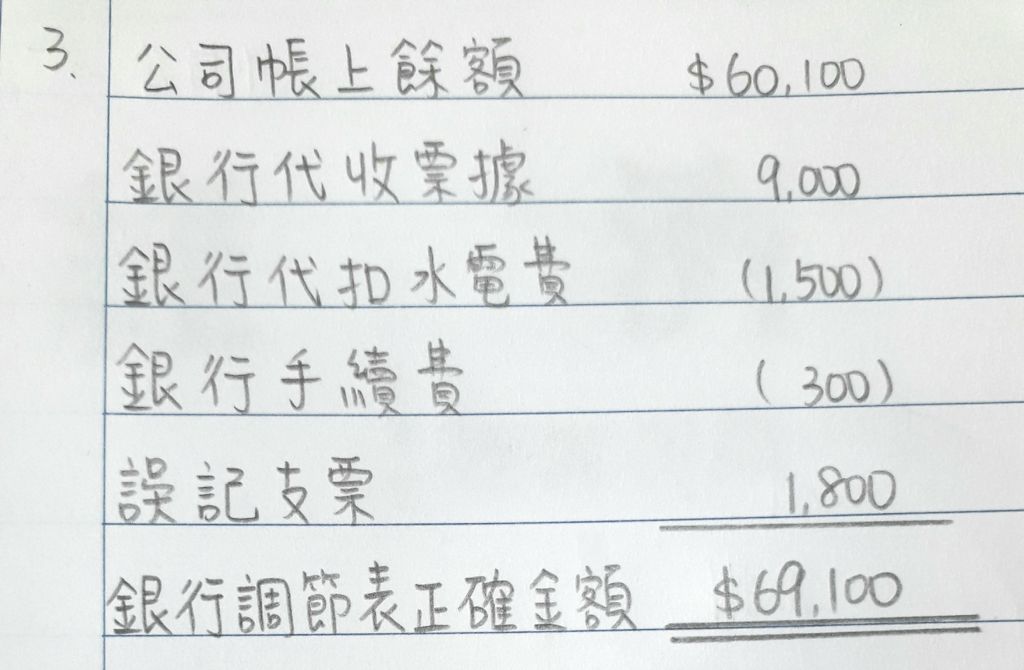 3. 公司帳上餘額 $60,100
銀行代收票據 9,000
銀行代扣水電費 (1,500)
銀行手續費 ( 300)
誤記支票 1,800
銀行調節表正確金額 $69,100